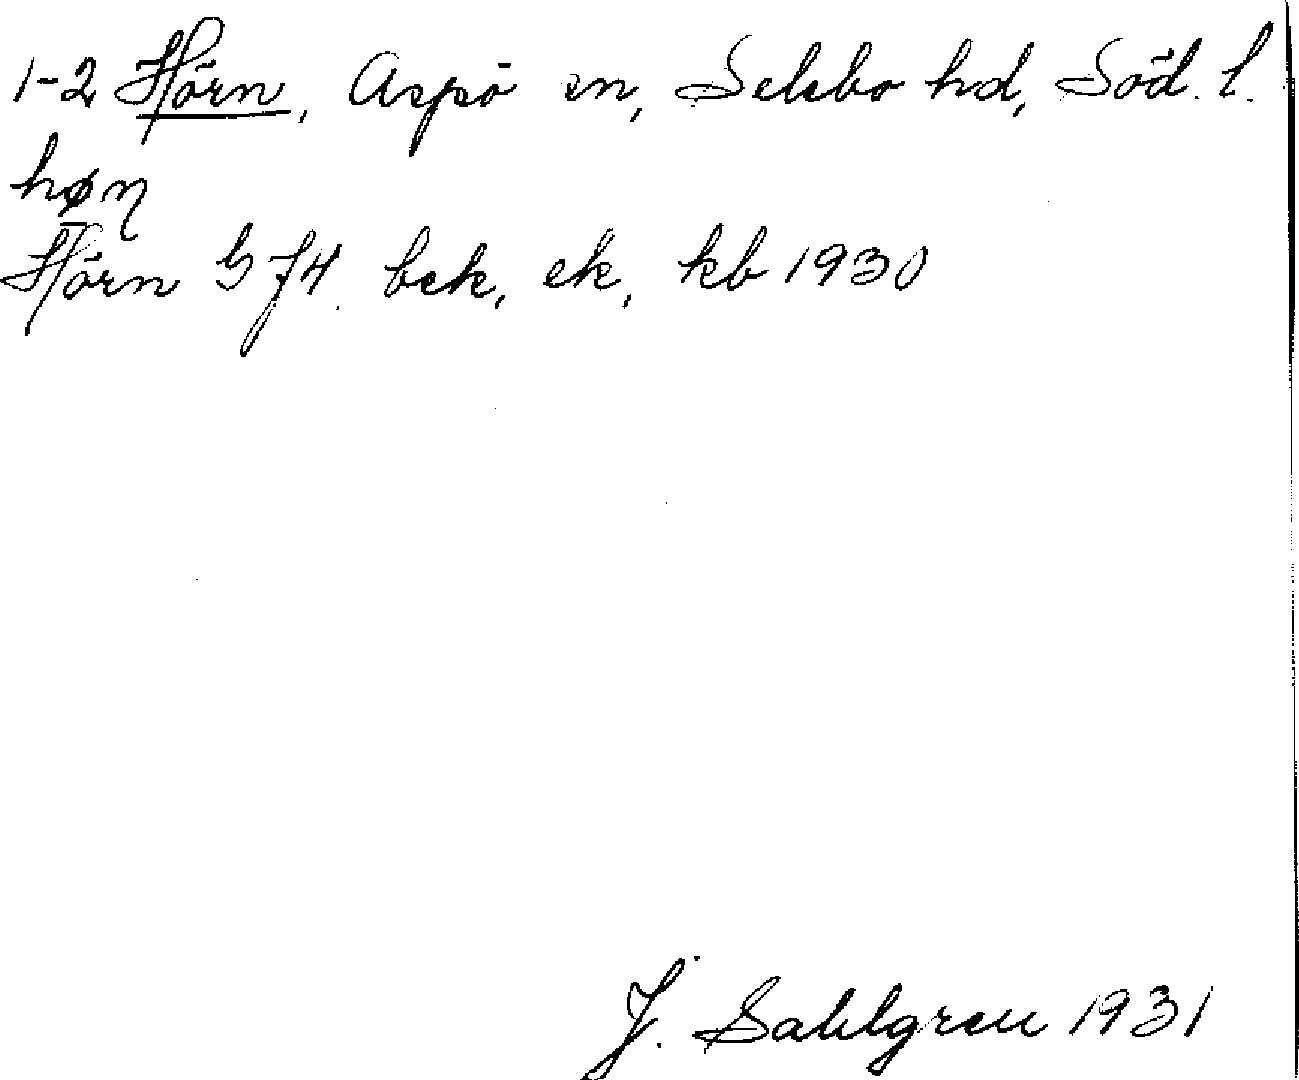 1-2 Hörn, Aspö sn, Selebo hd, Söd. l.
høɳ
Hörn GJ4. bek, ek, kb 1930
J. Sahlgren 1931